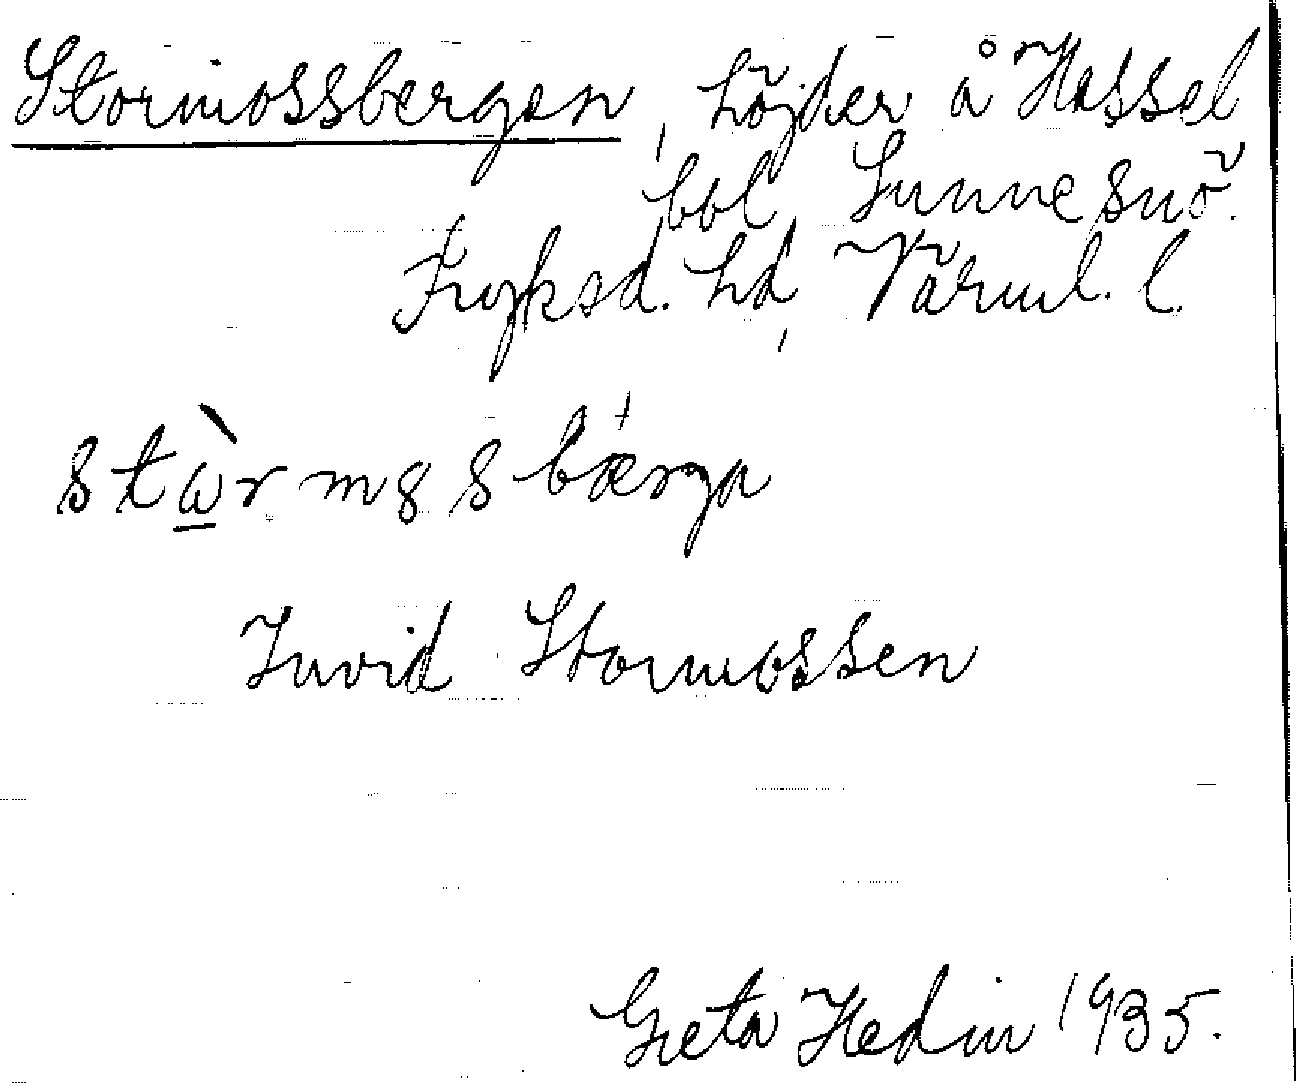 Stormossbergen, höjder å Hassel
bol, Sunne snö.
Fryksd. hd, Värml. l.
stὼ̲rmɞsbǽrga
Invid Stormossen
Greta Hedin 1935.